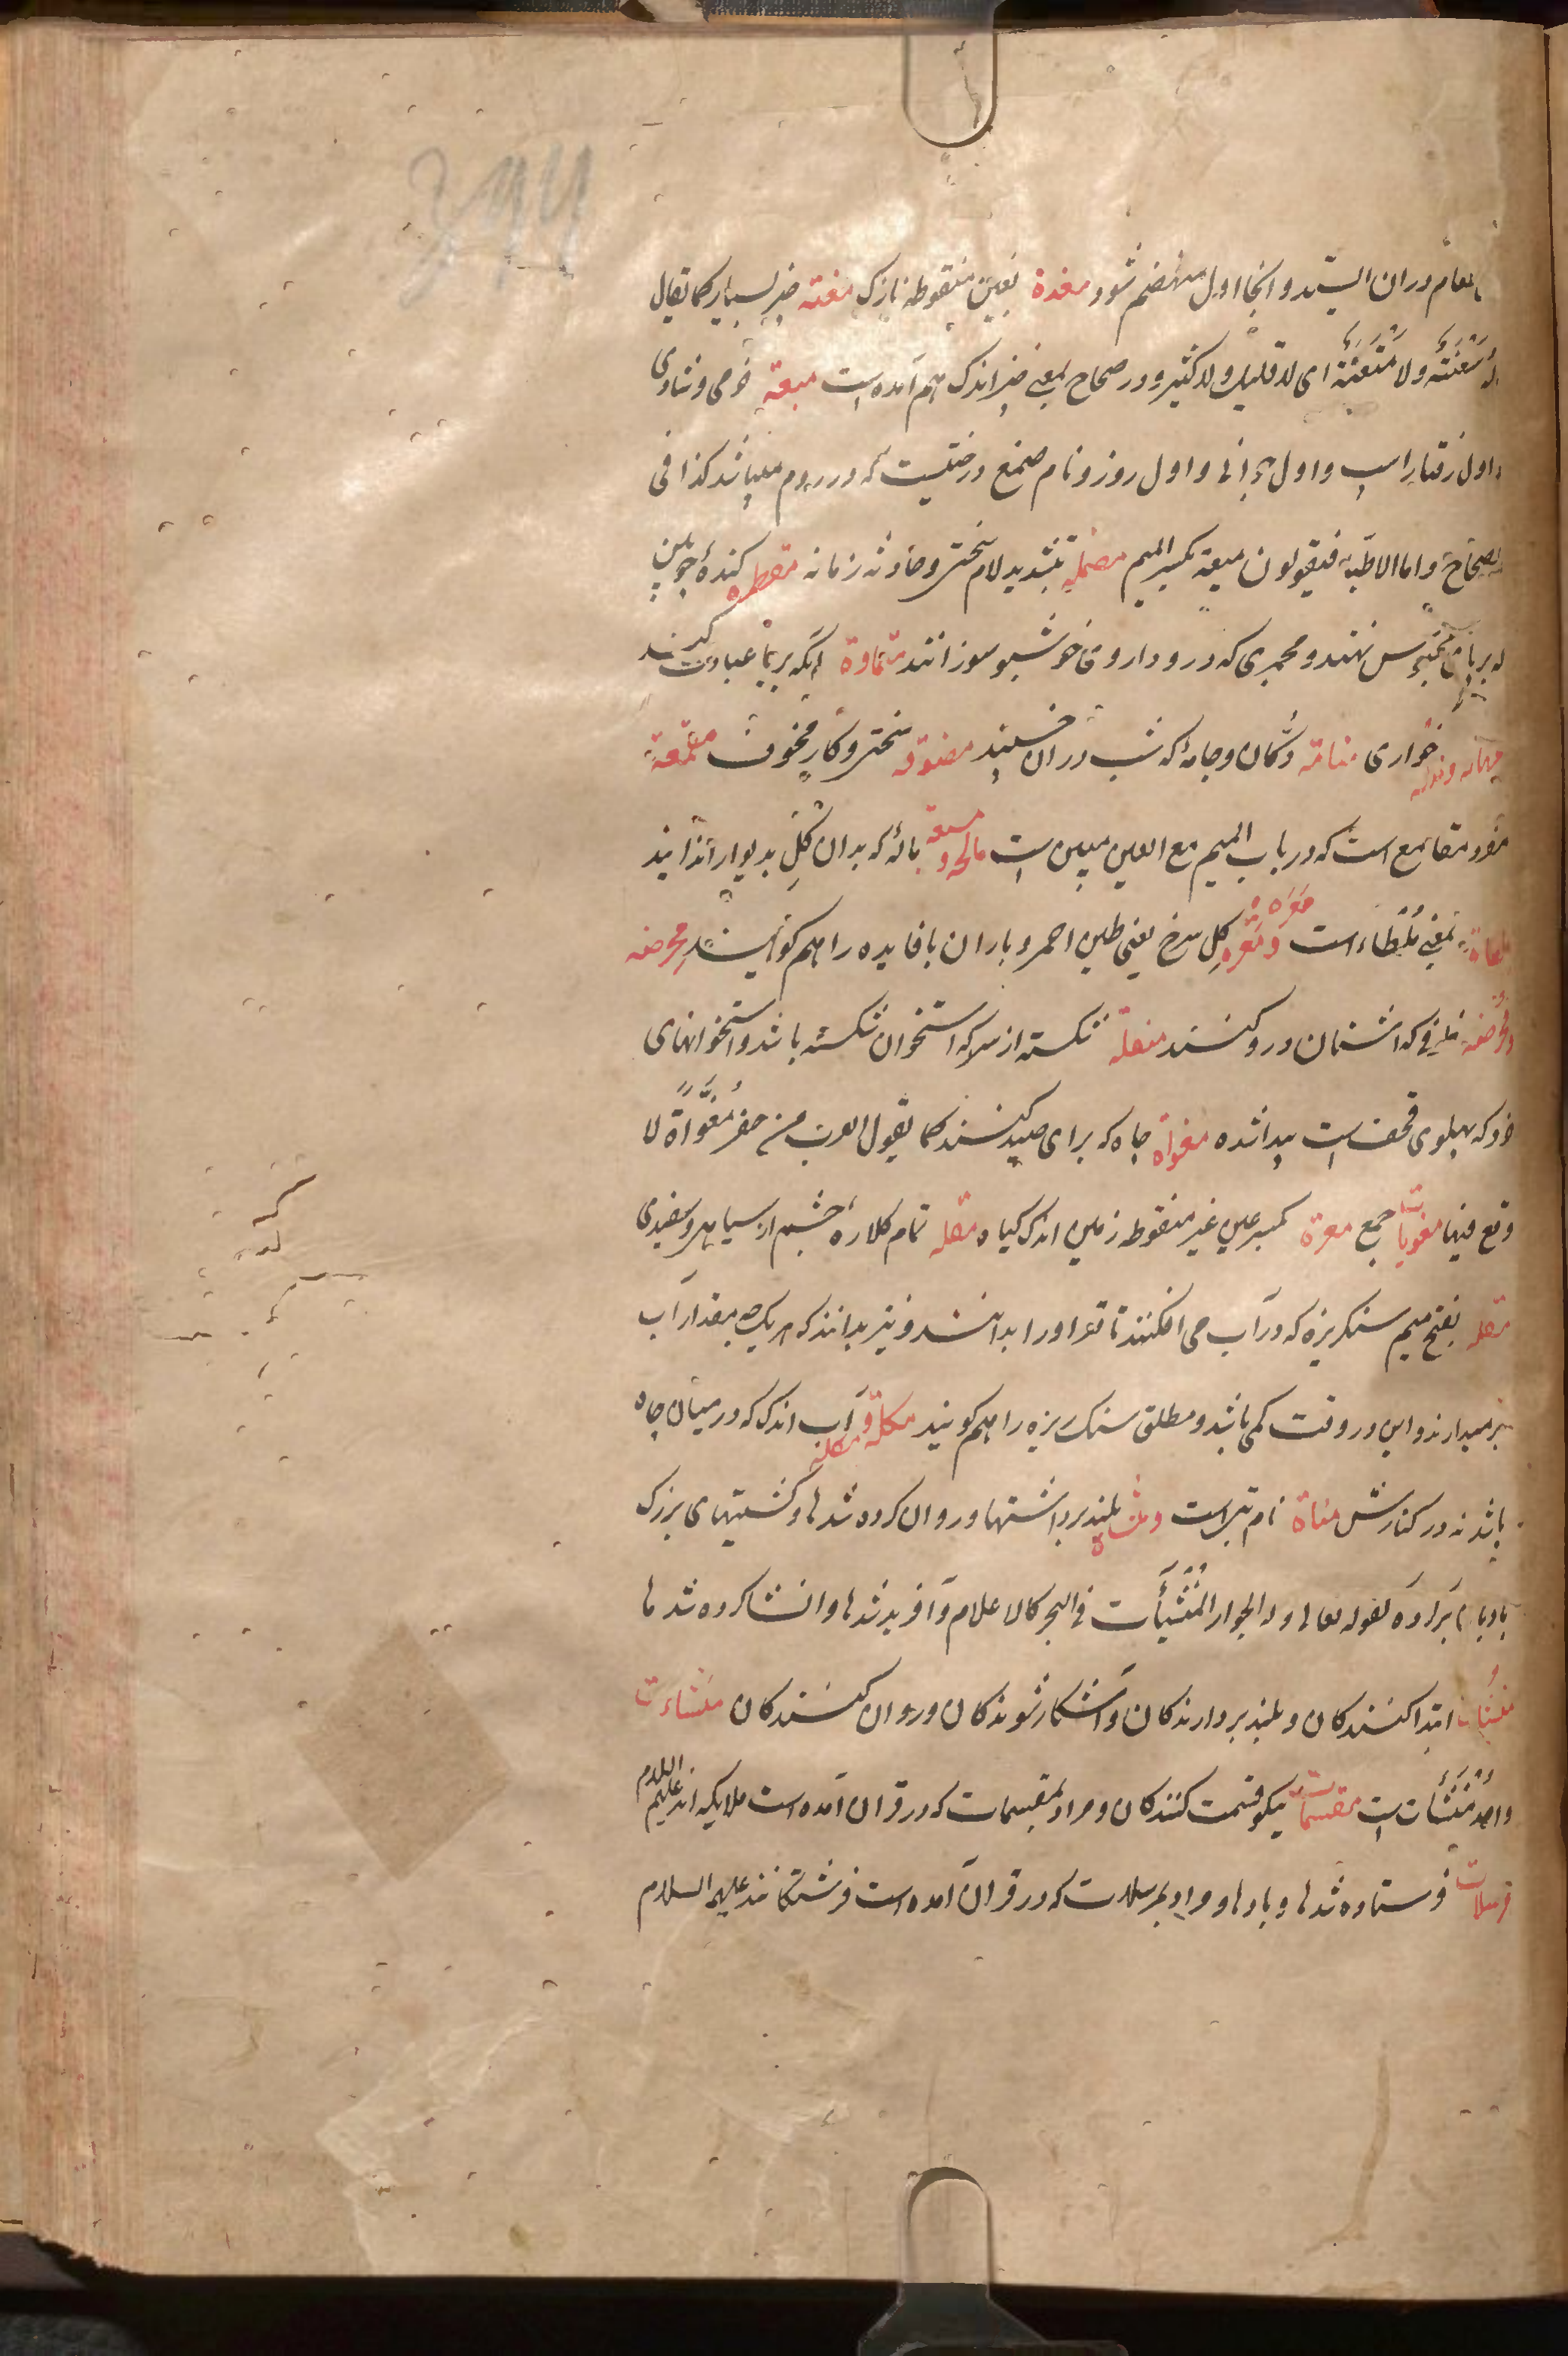 طعام در ان ایستد و انجا اول منهضم شود مغدة بغین منقوطه نازک معنة چیز بسیار کما یقال
سَعْنَةٌ ولا مَعْنَةٌ ای لا قلیل ولا کثیر و در صحاح بمعنی چیز اندک هم آمده است میعة خرمی و شادی
و اول رفتار اسب و اول جوانی و اول روز و نام صمغ درختیست که در روم میباشد کذا فی
الصحاح و اما الاطباء فیقولون میعة بکسر المیم مصمئلة بتشدید لام سختی و حادثه زمانه مقطره کندهٔ چوبین
که بر پای محبوس نهند و مجمری که درو داروی خوشبو سوزانند
خواری منامة دکان و جامهٔ که شب در ان خسپند مضوفه سختی و کار مخوف مقمعة
مفرد مقامع است که در باب المیم مع العین مبین است مالجه و مسیعة مالهٔ که بدان گل بدیوار اندایند
ملطاة بمعنی ملطاء است مَغَرَه و مَغْره گل سرخ یعنی طین احمر و باران بافایده را هم گویند محرضه
و مُحْرُضه ظرفی که اشنان درو کنند منقلة شکسته از سر که استخوان شکسته باشد و استخوانهای
خرد که پهلوی قحف است پیدا شده مغواة چاه که برای صید کنند کما یقول العرب من حفر مُغَوَّاةً لا
وقع فیها مغویات جمع معرة بکسر عین غیر منقوطه زمین اندک گیاه مقله تمام کلاره چشم از سیاهی و سفیدی
مقله بفتح میم سنگریزه که در آب می افکنند تا قعر او را بدانند و نیز بدانند که هر یک چه مقدار آب
بر میدارند و این در وقت کمی باشد و مطلق سنگ ریزه را هم گویند مکلة و مکلة آب اندک که در میان چاه
باشد نه در کنارش مناة نام بتی است و منشاة بلند برداشتها و روان کرده شدها و کشتیهای بزرگ
بادبان برآورده کقوله تعالی وله الجوار المُنْشَئَات فی البحر کالاعلام و آفریده شدها و انشا کرده شدها
منشئات ابتدا کنندگان و بلند بردارندگان و آشکار شوندگان و روان کنندگان منشاءت
واحد مُنْشَأت است مقسمات نیکو قسمت کنندگان و مراد بمقسمات که در قران آمده است ملایکه اند علیهم السلام
مرسلات فرستاده شدها و بادها و مراد بمرسلات که در قرآن آمده است فرشتگانند علیهم السلام